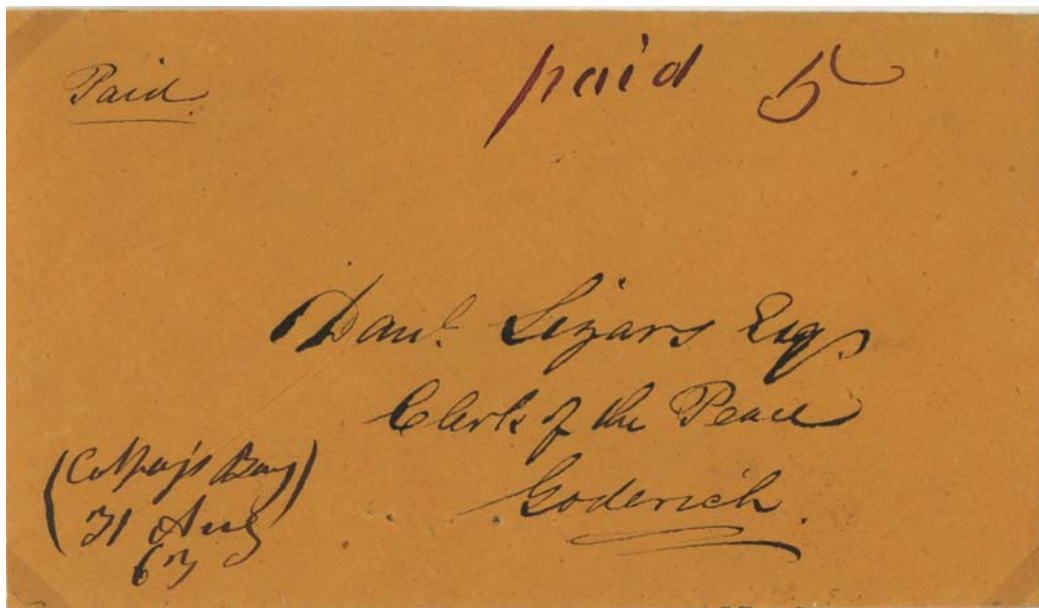 Paid
paid 5
Danl. Lizars Esqr
Clerk of the Peace
Goderich.
(Colpoy's Bay)
31 Aug
63